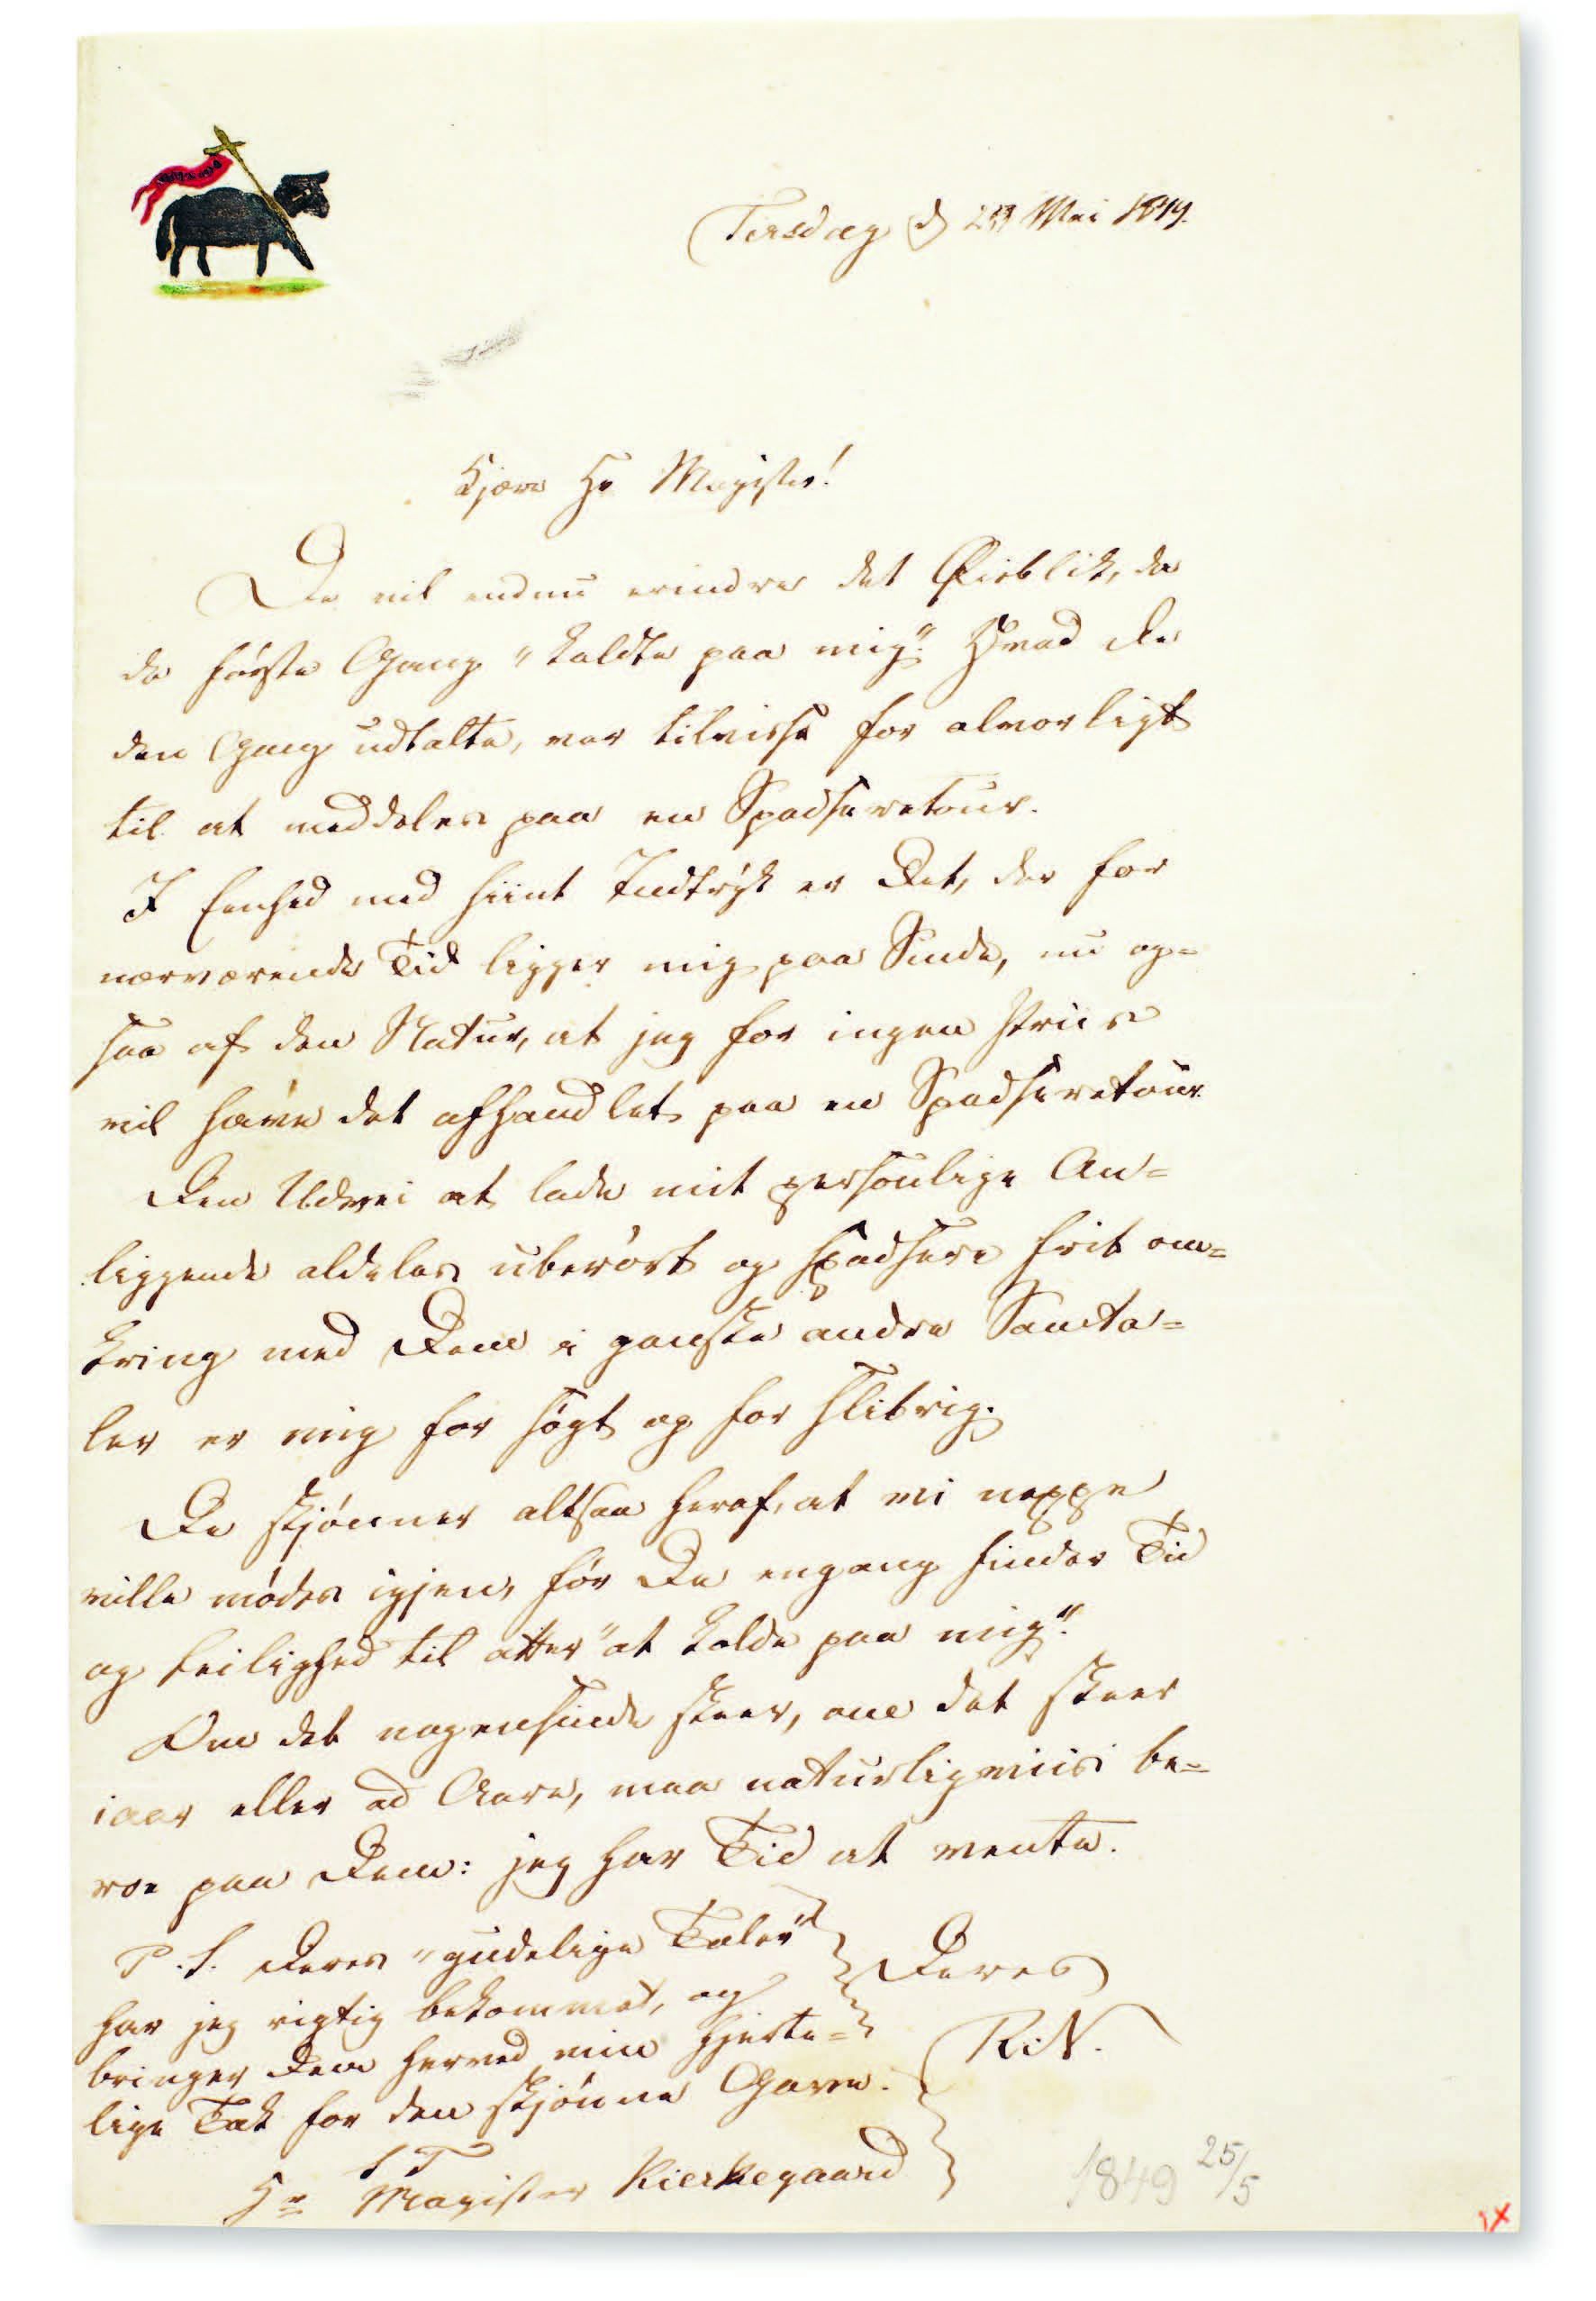 Tirsdag d 29 Mai 1849.
Kjære Hr Magister!
De vil endnu erindre det Øieblik, da
De første Gang „kaldte paa mig“. Hvad De
den Gang udtalte, var tilvisse for alvorligt
til at meddeles paa en Spadseretour.
I Eenhed med hiint Indtryk er Det, der for
nærværende Tid ligger mig paa Sinde, nu og=
saa af den Natur, at jeg for ingen Priis
vil have det afhandlet paa en Spadseretour.
Den Udvei at lade mit personlige An=
liggende aldeles uberørt og spadsere frit om=
kring med Dem i ganske andre Samta=
ler er mig for søgt og for slibrig.
De skjønner altsaa heraf, at vi neppe
ville mødes igjen, før De engang finder Tid
og Leilighed til atter „at kalde paa mig“.
Om det nogensinde skeer, om det skeer
iaar eller ad Aare, maa naturligviis be=
roe paa Dem: jeg har Tid at vente.
P.S. Deres „gudelige Taler“
har jeg rigtig bekommet, og
bringer Dem herved min hjerte=
lige Tak for den skjønne Gave.
Deres
R.N.
S T
Hr Magister Kierkegaard
1849 25/5